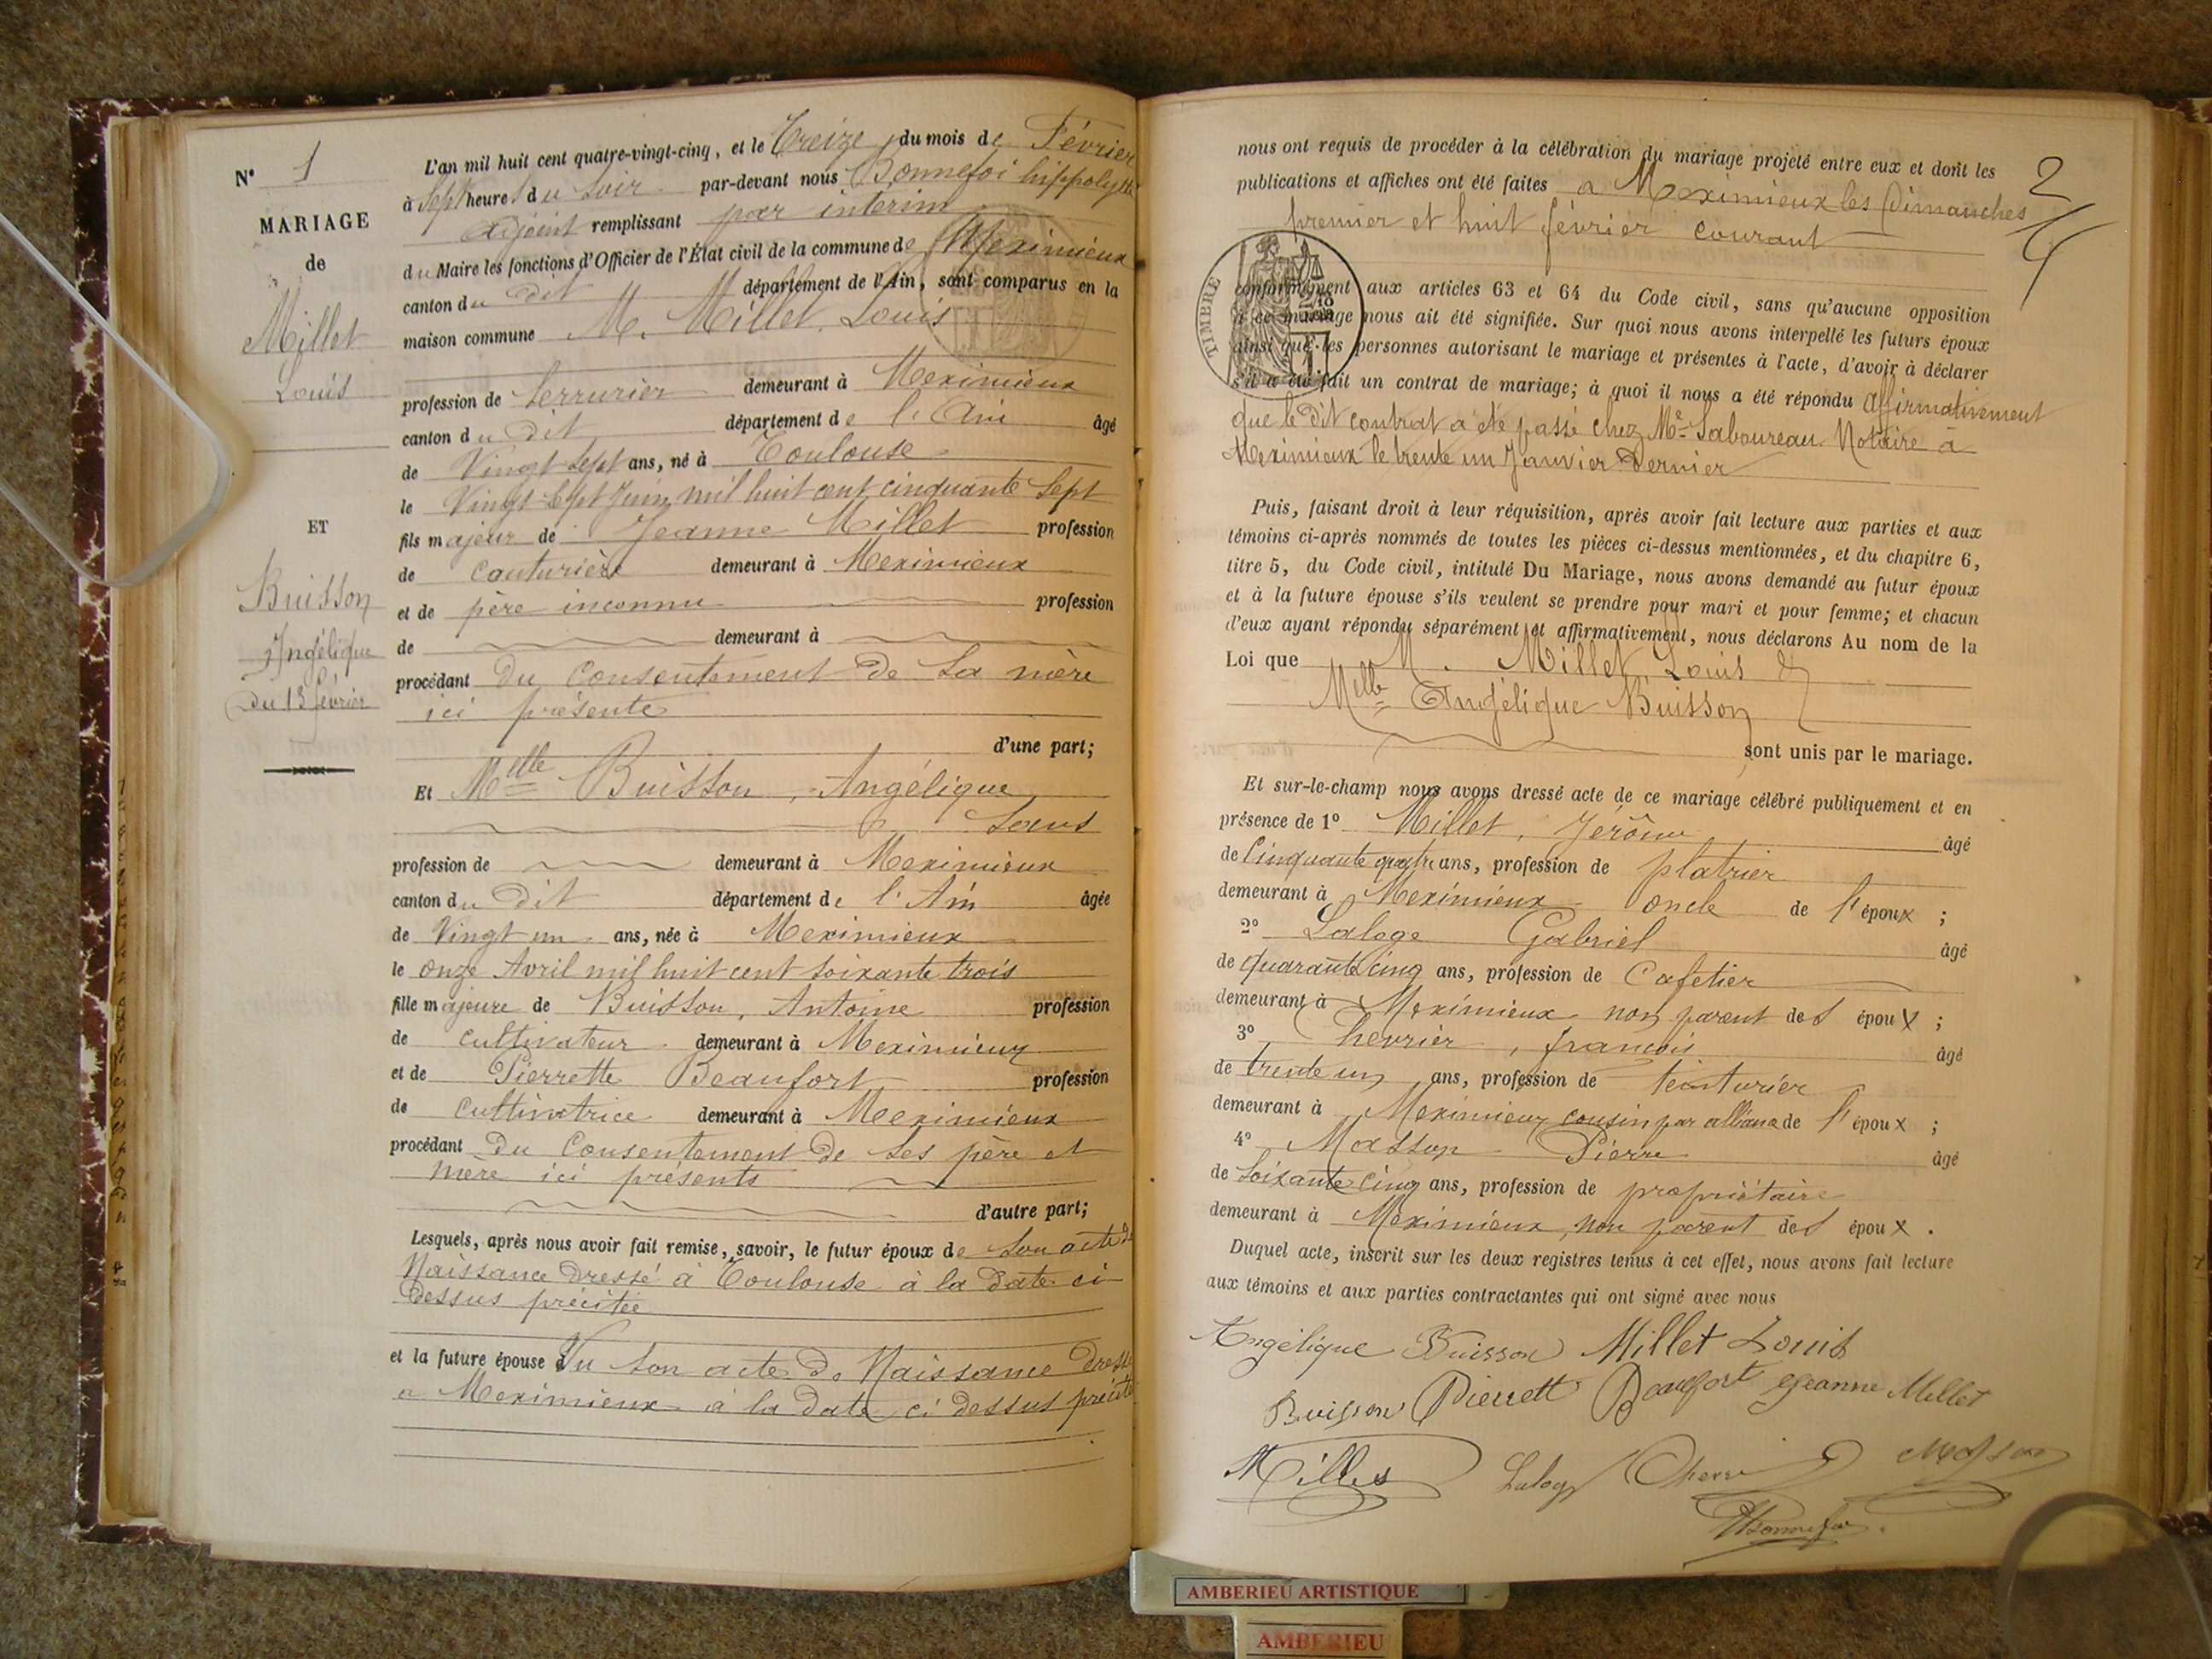 N° 1
MARIAGE
de
Millet
Louis
ET
Buisson
Angélique
du 13 février
L'an mil huit cent quatre-vingt-cinq, et le Treize du mois de Février
à Sept heures du Soir par-devant nous Bonnefoi hippolyte
adjoint remplissant par interim
du Maire les fonctions d'Officier de l'État civil de la commune de Meximieux
canton du dit département de l'Ain, sont comparus en la
maison commune M. Millet, Louis
profession de Serrurier demeurant à Meximieux
canton du dit département de l'Ain âgé
de Vingt Sept ans, né à Toulouse
le Vingt Sept Juin mil huit cent cinquante Sept
fils majeur de Jeanne Millet profession
de Couturière demeurant à Meximieux
et de père inconnu profession
de demeurant à
procédant Du Consentement De Sa mère
ici présente
d'une part;
Et Melle Buisson, Angélique
Sans
profession de demeurant à Meximieux
canton du Dit département de l'Ain âgée
de Vingt un ans, née à Meximieux
le onze Avril mil huit cent soixante trois
fille majeure de Buisson, Antoine profession
de cultivateur demeurant à Meximieux
et de Pierrette Beaufort profession
de Cultivatrice demeurant à Meximieux
procédant Du Consentement De Ses père et
mère ici présents
d'autre part;
Lesquels, après nous avoir fait remise, savoir, le futur époux de Son acte de
Naissance Dressé à Toulouse à la Date ci
Dessus précitée
et la future épouse Vu Son acte De Naissance Dressé
a Meximieux à la Date ci Dessus précité
nous ont requis de procéder à la célébration du mariage projeté entre eux et dont les
publications et affiches ont été faites a Meximieux les Dimanches
premier et huit février courant
2
TIMBRE
conformément aux articles 63 et 64 du Code civil, sans qu'aucune opposition
à ce mariage nous ait été signifiée. Sur quoi nous avons interpellé les futurs époux
ainsi que les personnes autorisant le mariage et présentes à l'acte, d'avoir à déclarer
s'il a été fait un contrat de mariage; à quoi il nous a été répondu affirmativement
que le Dit contrat a été passé chez Me Saboureau Notaire à
Meximieux le trente un Janvier Dernier
Puis, faisant droit à leur réquisition, après avoir fait lecture aux parties et aux
témoins ci-après nommés de toutes les pièces ci-dessus mentionnées, et du chapitre 6,
titre 5, du Code civil, intitulé Du Mariage, nous avons demandé au futur époux
et à la future épouse s'ils veulent se prendre pour mari et pour femme; et chacun
d'eux ayant répondu séparément et affirmativement, nous déclarons Au nom de la
Loi que M. Millet Louis &
Melle Angélique Buisson
sont unis par le mariage.
Et sur-le-champ nous avons dressé acte de ce mariage célébré publiquement et en
présence de 1° Millet, Jérôme âgé
de Cinquante quatre ans, profession de platrier
demeurant à Meximieux oncle de l'époux ;
2° Laloge Gabriel âgé
de quarante cinq ans, profession de Cafetier
demeurant à Meximieux non parent des époux ;
3° Chevrier, françois âgé
de trente un ans, profession de teinturier
demeurant à Meximieux cousin par alliance de l'époux ;
4° Masson Pierre âgé
de Soixante Cinq ans, profession de propriétaire
demeurant à Meximieux, non parent des époux .
Duquel acte, inscrit sur les deux registres tenus à cet effet, nous avons fait lecture
aux témoins et aux parties contractantes qui ont signé avec nous
Angélique Buisson Millet Louis
Buisson Pierrett Beaufort Jeanne Millet
Millet Laloge Chevrier Masson
Bonnefoi
AMBERIEU ARTISTIQUE
AMBERIEU